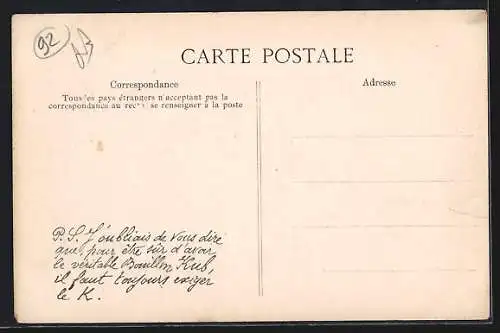 92
CARTE POSTALE
Correspondance
Tous les pays étrangers n'acceptant pas la
correspondance au recto se renseigner à la poste
Adresse
P.S. J'oubliais de vous dire
que, pour être sûr d'avoir
le véritable Bouillon Kub,
il faut toujours exiger
le K.